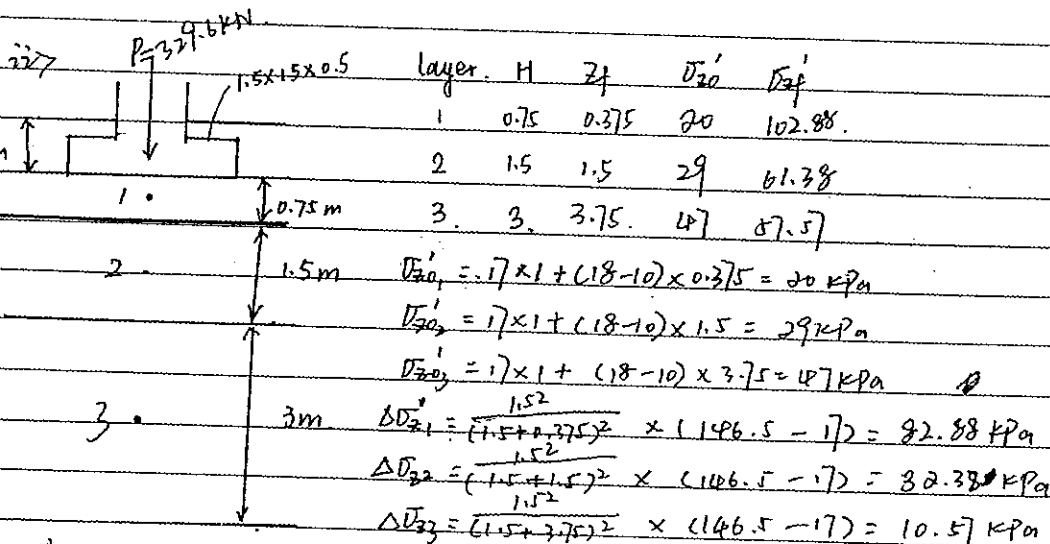 ii>
P=329.6KN
1.5x1.5x0.5
layer. H Zf σ'z0 σ'zf
1 0.75 0.375 20 102.88.
2 1.5 1.5 29 61.38
3. 3. 3.75. 47 57.57
1 •
0.75 m
2 •
1.5m
3 •
3m
σ'z01 = 17×1+(18-10)×0.375 = 20 kPa
σ'z02 = 17×1+(18-10)×1.5 = 29kPa
σ'z03 = 17×1+ (18-10) × 3.75 = 47kPa
Δσ'z1 = 1.5²/(1.5+0.375)² × (146.5-17) = 82.88 kPa
Δσz2 = 1.5²/(1.5+1.5)² × (146.5-17) = 32.38 kPa
Δσz3 = 1.5²/(1.5+3.75)² × (146.5-17) = 10.57 kPa